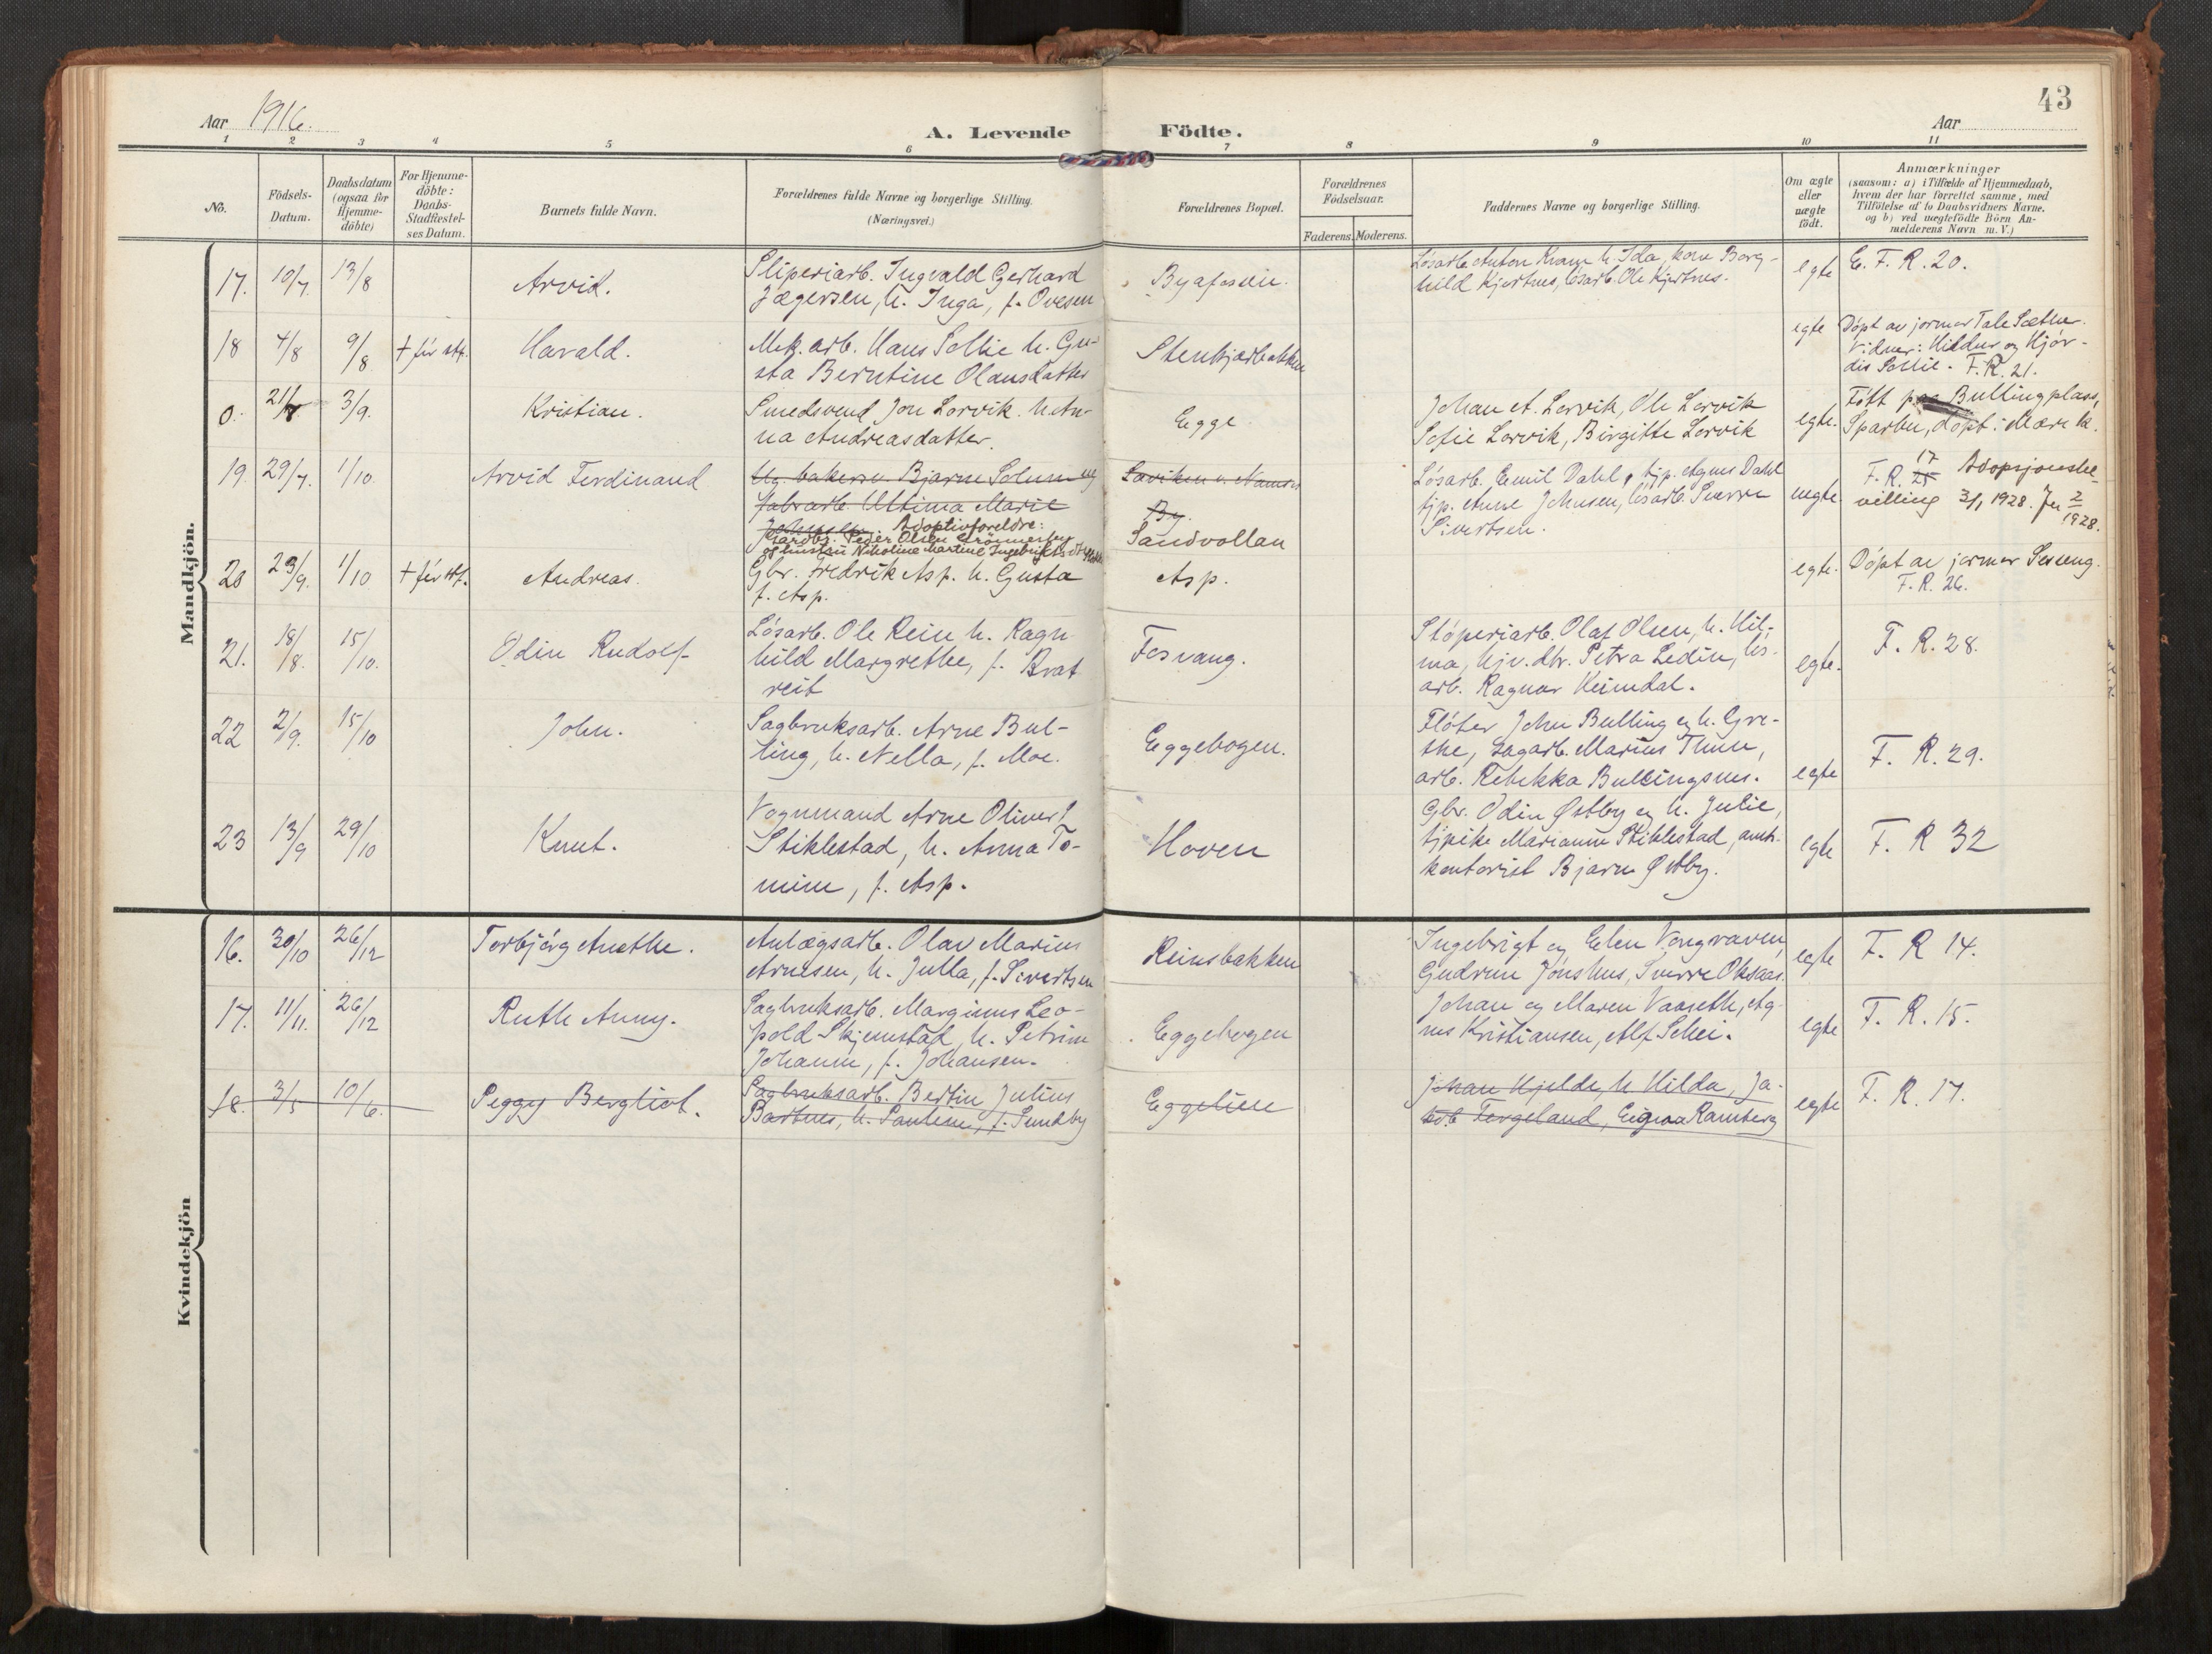 43
Aar 1916.
A. Levende Födte.
Aar
1 2 3 4 5 6 7 8 9 10 11
No.
Födsels-
Datum.
Daabsdatum
(ogsaa for
Hjemme-
döbte)
For Hjemme-
döbte:
Daabs-
Stadfæstel-
ses Datum.
Barnets fulde Navn.
Forældrenes fulde Navne og borgerlige Stilling.
(Næringsvei.)
Forældrenes Bopæl.
Forældrenes
Födselsaar.
Faderens. Moderens.
Faddernes Navne og borgerlige Stilling.
Om ægte
eller
uægte
födt.
Anmærkninger
(saasom: a) i Tilfælde af Hjemmedaab,
hvem der har forrettet samme, med
Tilföielse af to Daabsvidners Navne.
og b) ved uægtefödte Börn An-
melderens Navn m. V.)
Mandkjön.
17. 10/7. 13/8 Arvid.
Sliperiarb. Ingvald Gerhard
Jægersen, h. Inga, f. Ovesen
Byafossen.
Lösarb. Anton Kvam h. Ida, kone Borg-
hild Kjertnes, lösarb. Ole Kjertnes.
egte
E. F. R. 20.
18 4/8 9/8 † för stf. Harald.
Mek. arb. Hans Sellie h. Gu-
sta Berntine Olausdatter
Stenkjærbakken
egte
Döpt av jormor Tale Sæther.
Vidner: Hildur og Hjör-
dis Sellie. F. R. 21.
0. 21/7 3/9. Kristian.
Smedsvend Jon Lorvik. h. An-
na Andreasdatter.
Egge
Johan A. Lorvik, Ole Lorvik
Sofie Lorvik, Birgitte Lorvik
egte.
Fött paa Bullingplass,
Sparbu, döpt i Mære k.
19. 29/7. 1/10 Arvid Ferdinand
Ug. bakersv. Bjarne Solum og
fabrarb. Ultima Marie
Adoptivforeldre:
Gardbr. Peder Olsen Grönnesby
og hustru Nikoline Martine Ingebrigtsdtr
By.
Sandvollan
Lösarb. Emil Dahl, tjp. Agnes Dahl
tjp. Anne Johnsen, lösarb. Sverre
Sivertsen.
uegte
F. R. 25 17 Adopsjonsbe-
villing 3/1 1928. Jn 2/1928.
20 23/9. 1/10 † för stf. Andreas.
Gbr. Fredrik Asp. h. Gusta
f. Asp.
Asp.
egte.
Döpt av jormor Seseng.
F. R. 26.
21. 18/8. 15/10. Odin Rudolf
Lösarb. Ole Rein h. Ragn-
hild Margrethe, f. Brat
reit
Fosvang.
Stöperiarb. Olaf Olsen, h. Hil-
ma, hjv. dtr. Petra Ledin, lös-
arb. Ragnar Heimdal.
egte.
F. R. 28.
22 2/9. 15/10 John.
Sagbruksarb. Arne Bul-
ling, h. Nella, f. Moe.
Eggebogen.
Flöter John Bulling og h. Gre-
the, sagarb. Marius Thun,
arb. Rebekka Bullingsnes.
egte
F. R. 29.
23 13/9 29/10 Knut.
Vognmand Arne Oliver
Stiklestad, h. Anna To-
mine, f. Asp.
Hoven
Gbr. Odin Østby og h. Julie,
tjpike Marianne Stiklestad, amts-
kontorist Bjarne Østby.
egte
F. R 32
Kvindekjön
16. 30/10 26/12 Torbjörg Anethe.
Anlægsarb. Olav Marius
Arnesen, h. Julla, f. Sivertsen
Reinsbakken
Ingebrigt og Elen Vongraven,
Gudrun Jönshus, Sverre Oksaas.
egte
F. R 14.
17. 11/11. 26/12 Ruth Anny.
Sagbruksarb. Marginus Leo-
pold Skjemstad, h. Petrine
Johanne, f. Johansen.
Eggebogen
Johan og Maren Vaaseth, Ag-
nes Kristiansen, Alf Selei.
egte
F. R. 15.
18. 3/5 10/6. Peggy Bergliot.
Sagbruksarb. Bertin Julius
Bartnes, h. Pauline, f. Sundby
Eggelien
Johan Hjelde, h. Hilda, Ja-
kob Forgeland, Eigna Ramberg
egte
F. R. 17.